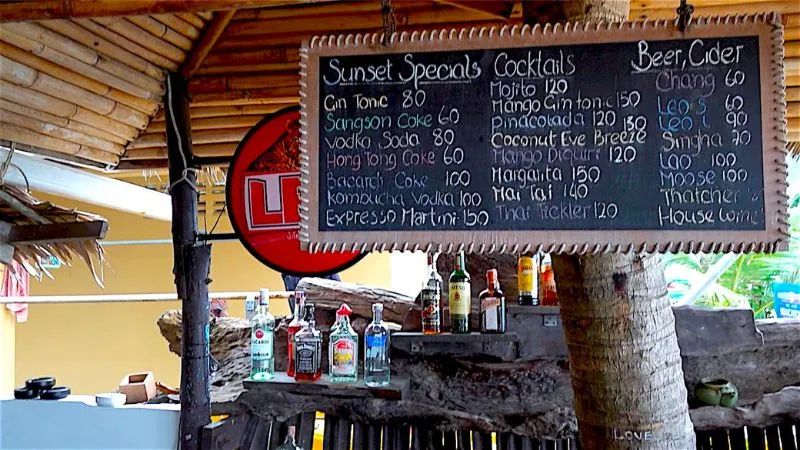 Sunset Specials
Gin Tonic 80
Sangson Coke 60
Vodka Soda 80
Hong Tong Coke 60
Bacardi Coke 100
Kombucha Vodka 100
Expresso Martini 150
Cocktails
Mojito 120
Mango Gin tonic 150
Pinacolada 120
Coconut Eve Breeze 130
Mango Diquiri 120
Margarita 150
Mai Tai 140
Thai Tickler 120
Beer, Cider
Chang 60
Leo S 60
Leo L 90
Singha 70
Lao 100
Moose 100
Thatcher
House wine
LE
BACARDI
JAMESON
LOVE